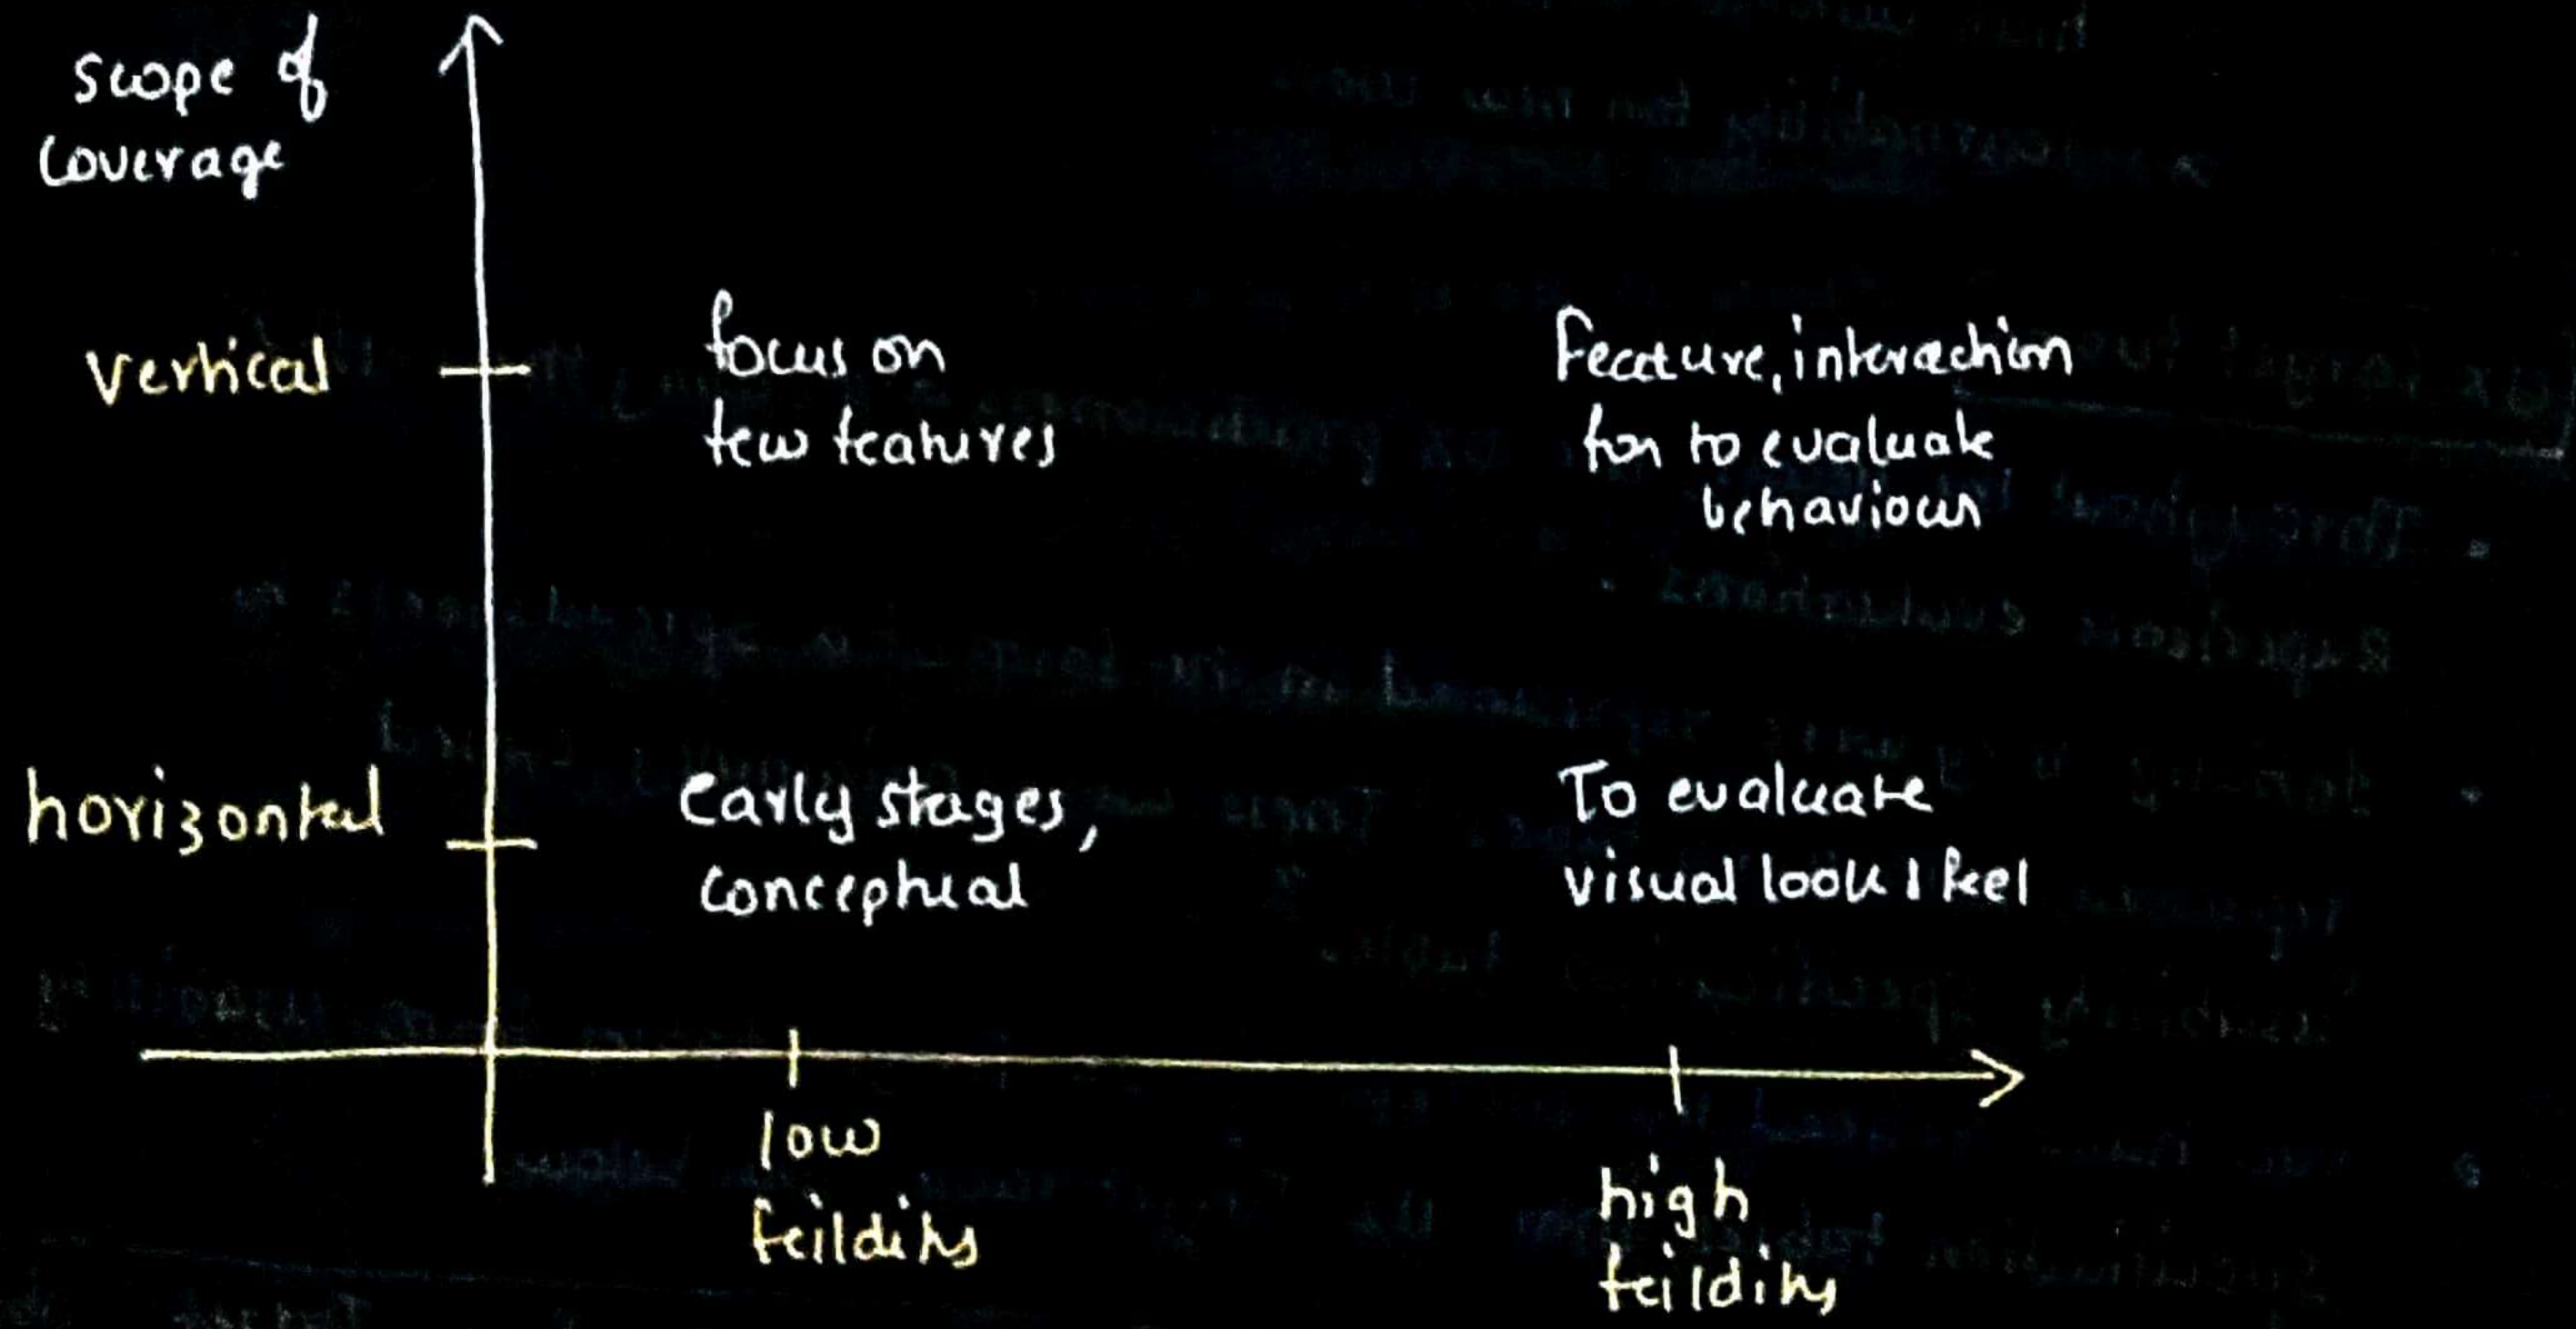 scope of
coverage
vertical
focus on
few features
Feature, interaction
for to evaluate
behaviour
horizontal
Early stages,
conceptual
To evaluate
visual look / feel
low
feildity
high
feildity